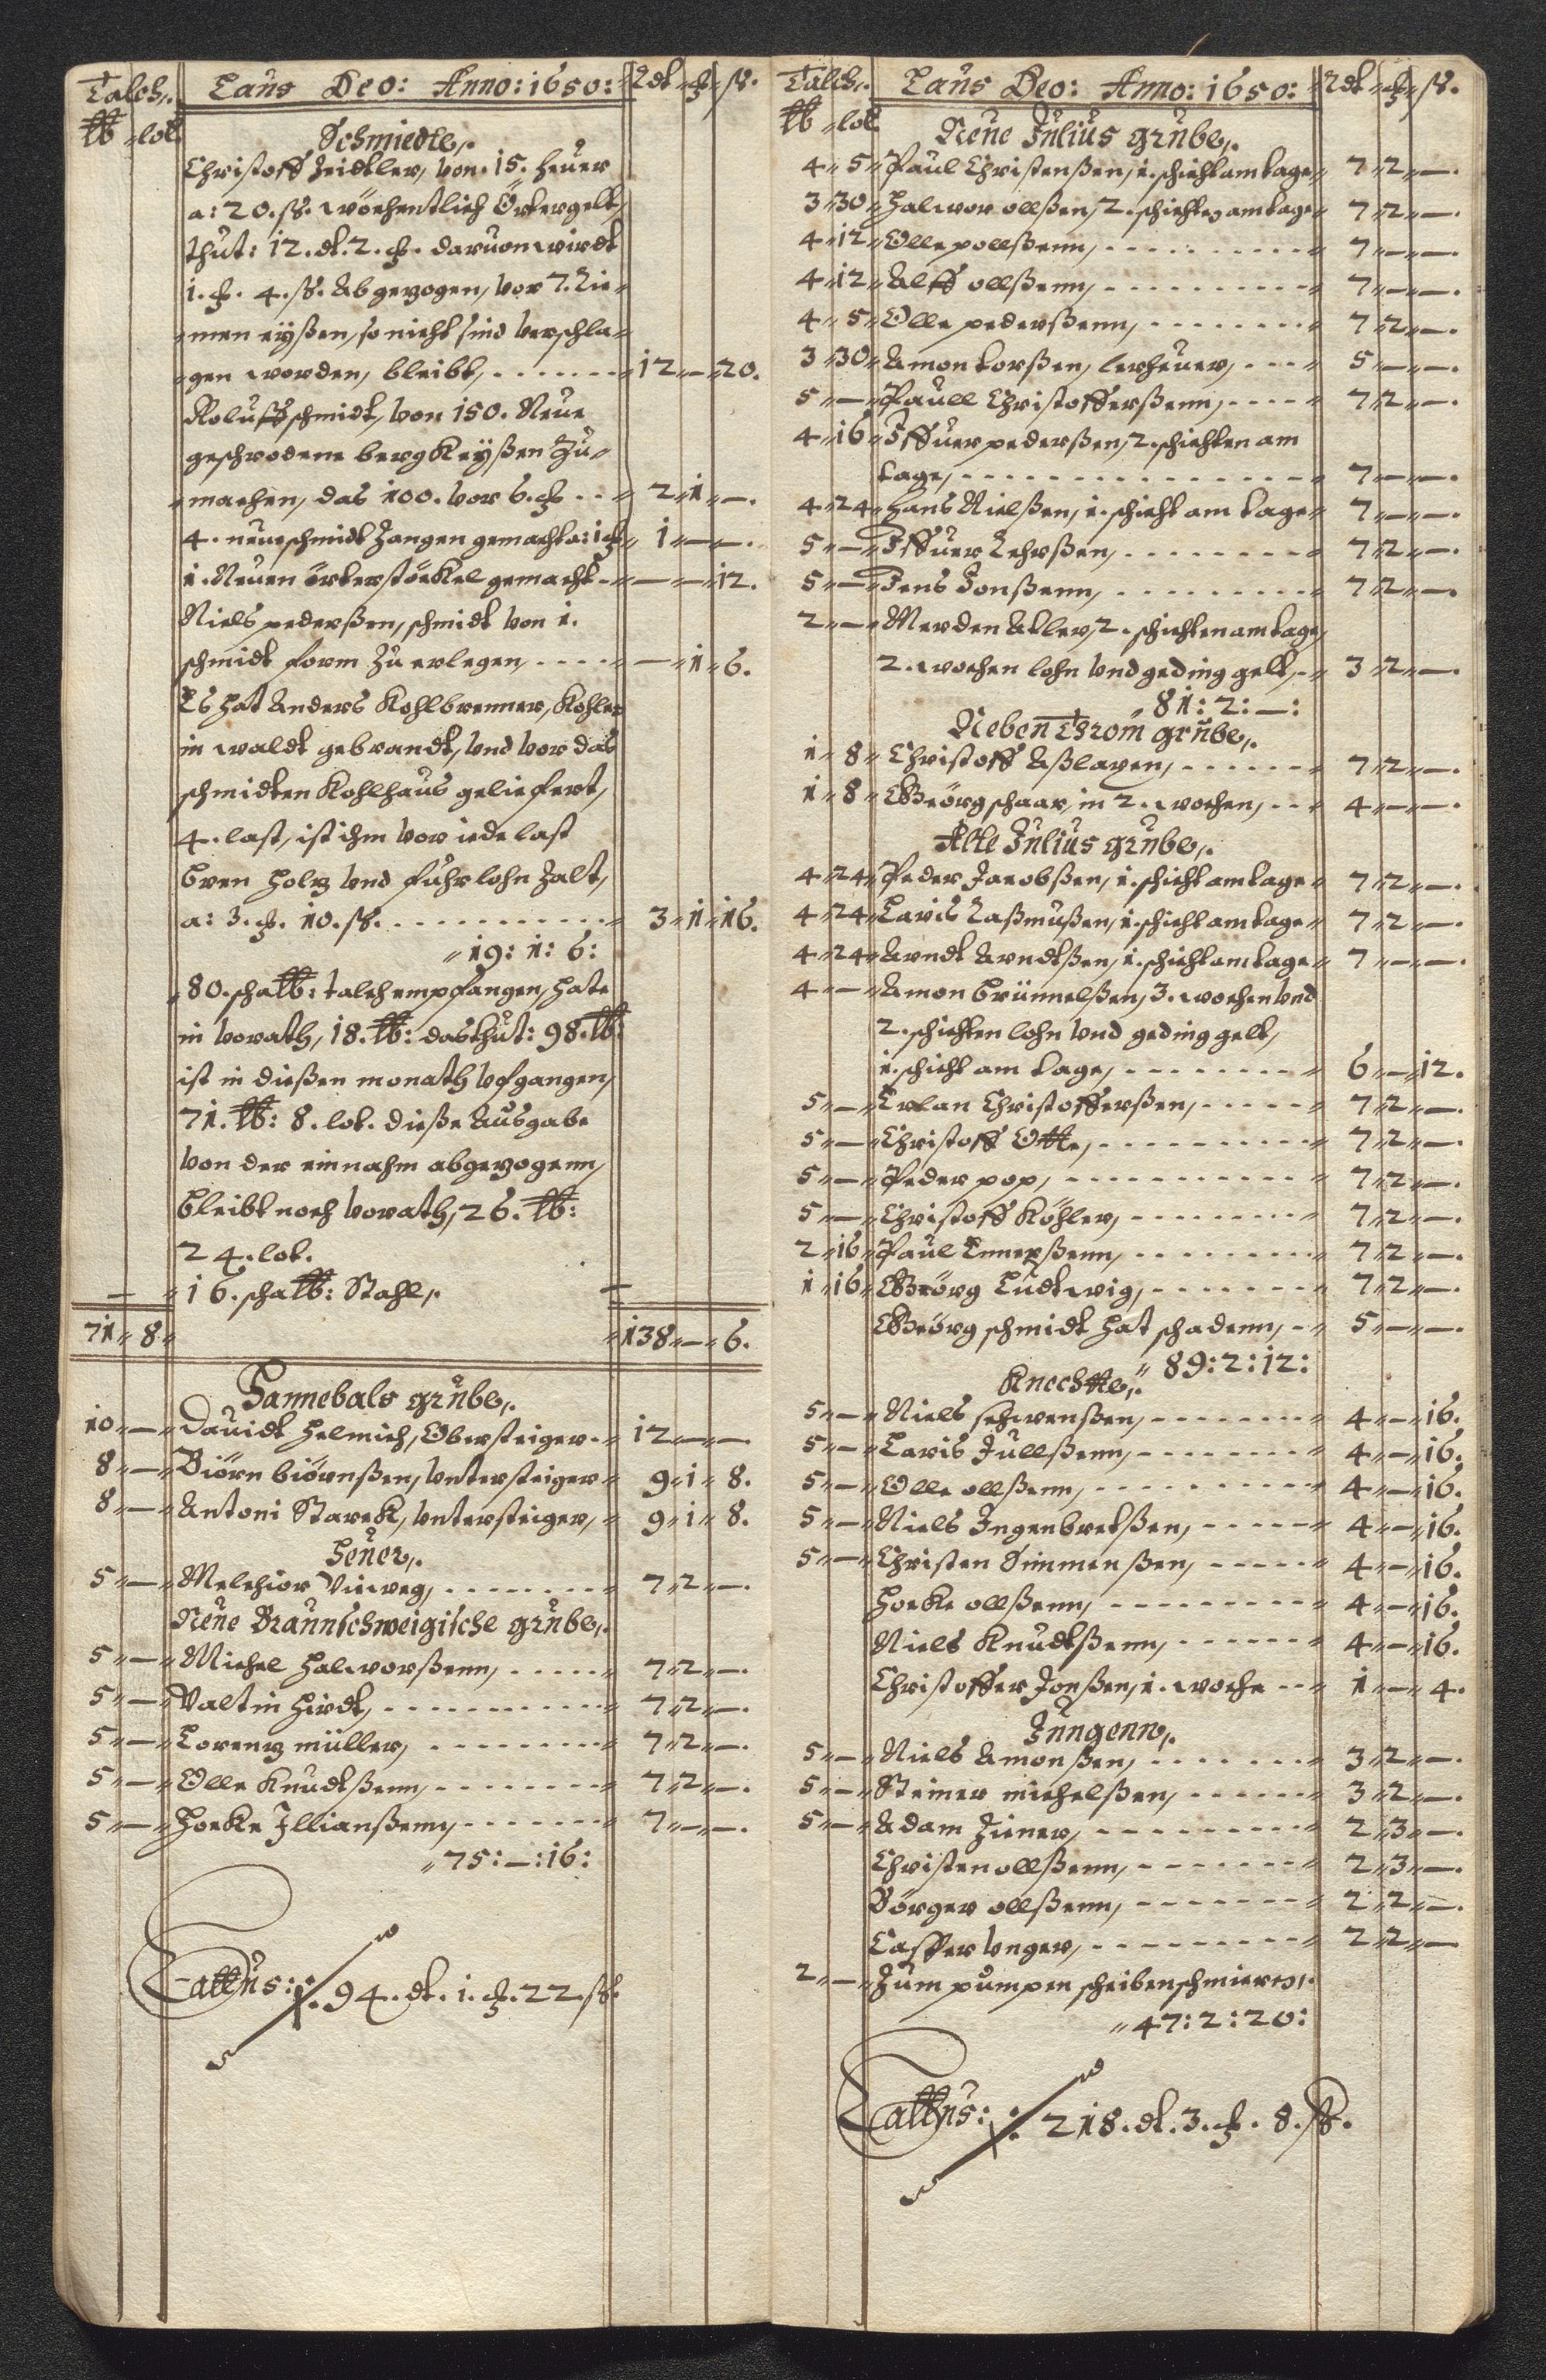 Talch,. Laus Deo: Anno: 1650: Rdt ß.
lb lot
Schmiedte,.
Christoff Zeidtler, von. 15. heuer
a: 20. ß. wöchentlich Örtergelt,
thut: 12. dt. 2. daruon wirdt
1. 4. ß. Abgezogen, vor 7. Rie-
men eyßen, so nicht sind verschla-
gen worden, bleibt, 12 — 20.
Roluff schmidt, von 150. Neue
geschrodene bergkeyßen Zu-
machen, das 100. vor 6. 2 1 —.
4. neue schmidt Zangen gemacht a: 1 1 — —.
1. Neuen örterstöckel gemacht — — 12.
Niels pederßen, schmidt von 1.
schmidt form Zu erlegen, — 1 6.
Es hat Anders Kohlbrenner, Kohler
in waldt gebrandt, vnd vor das
schmidten Kohlhaus geliefert,
4. last, ist ihm vor iede last
bren holz vnd fuhrlohn Zalt,
a: 3. 10. ß. 3 1 16.
19: 1: 6:
80. scha lb: talch empfangen, hate
in vorath, 18. lb: das thut: 98. lb:
ist in dießen monath vfgangen,
71. lb: 8. lot. dieße Ausgabe
von der einnahm abgezogenn,
bleibt noch vorath, 26. lb:
24. lot.
— 16. scha lb: Stahl,. —
71 8 138 — 6.
Hannebals grube,.
10 — Dauidt Helmich, Obersteiger 12 — —
8 — Biörn biörnßen, vntersteiger 9 1 8.
8 — Antoni Starck, vntersteiger, 9 1 8.
Heuer,.
5 — Melchior Viiweg, 7 2 —.
Neue Braunschweigische grube,.
5 — Michel Halworßenn, 7 2 —.
5 — Valtin Hirdt, 7 2 —.
5 — Lorenz müller, 7 2 —.
5 — Olle Knudtßenn, 7 2 —.
5 — Hocke Illianßenn, 7 — —.
75: — : 16:
Lattus: 94. dt. 1. 22. ß.
Talch,. Laus Deo: Anno: 1650: Rdt ß.
lb lot
Neue Julius grube,.
4 5 Paul Christenßen, 1. schicht am tage 7 2 —.
3 30 Halwor ollßen, 2. schichten am tage 7 2 —.
4 12 Olle pollßenn, 7 — —.
4 12 Alff ollßenn, 7 — —.
4 5 Olle pederßenn, 7 2 —.
3 30 Amon torßen, lerheuer, 5 — —.
5 — Paull Christofferßenn, 7 2 —.
4 16 Iffuer pederßen, 2. schichten am
tage, 7 — —.
4 24 Hans Nielßen, 1. schicht am tage 7 — —.
5 — Iffuer Lehrßen, 7 2 —.
5 — Jens Jonßenn, 7 2 —.
2 — Merden Atler, 2. schichten am tage,
2. wochen lohn vnd geding gelt, 3 2 —.
81: 2: — :
Neben Chrom grube,.
1 8 Christoff Aßlaxen, 7 2 —.
1 8 Geörg schaar, in 2. wochen, 4 — —.
Alte Julius grube,.
4 24 Peder Jacobßen, 1. schicht am tage 7 2 —.
4 24 Lavis Raßmußen, 1. schicht am tage 7 2 —.
4 24 Arndt Arndtßen, 1. schicht am tage 7 — —.
4 — Amon brünnelßen, 3. wochen vnd
2. schichten lohn vnd geding gelt,
1. schicht am tage, 6 — 12.
5 — Erlan Christofferßen, 7 2 —.
5 — Christoff Otte, 7 2 —.
5 — Peder pop, 7 2 —.
5 — Christoff Köhler, 7 2 —.
2 16 Paul Ennerßenn, 7 2 —.
1 16 Geörg Ludtwig, 7 2 —.
Geörg schmidt hat schadenn, 5 — —.
89: 2: 12:
Knechtte,.
5 — Niels schwenßen, 4 — 16.
5 — Laris Jullßenn, 4 — 16.
5 — Olle ollßenn, 4 — 16.
5 — Niels Ingenbretßen, 4 — 16.
5 — Christen Simmenßen, 4 — 16.
Hocke ollßenn, 4 — 16.
Niels Knudtßenn, 4 — 16.
Christoffer Jonßen, 1. woche 1 — 4.
Jungenn,.
5 — Niels Amonßen, 3 2 —.
5 — Steiner michelßen, 3 2 —.
5 — Adam Ziener, 2 3 —.
Christen ollßenn, 2 3 —.
Börger ollßenn, 2 2 —.
Casper vnger, 2 2 —
2 — Zum pumpen scheiben schmieren,.
47: 2: 20:
Lattus: 218. dt. 3. 8. ß.